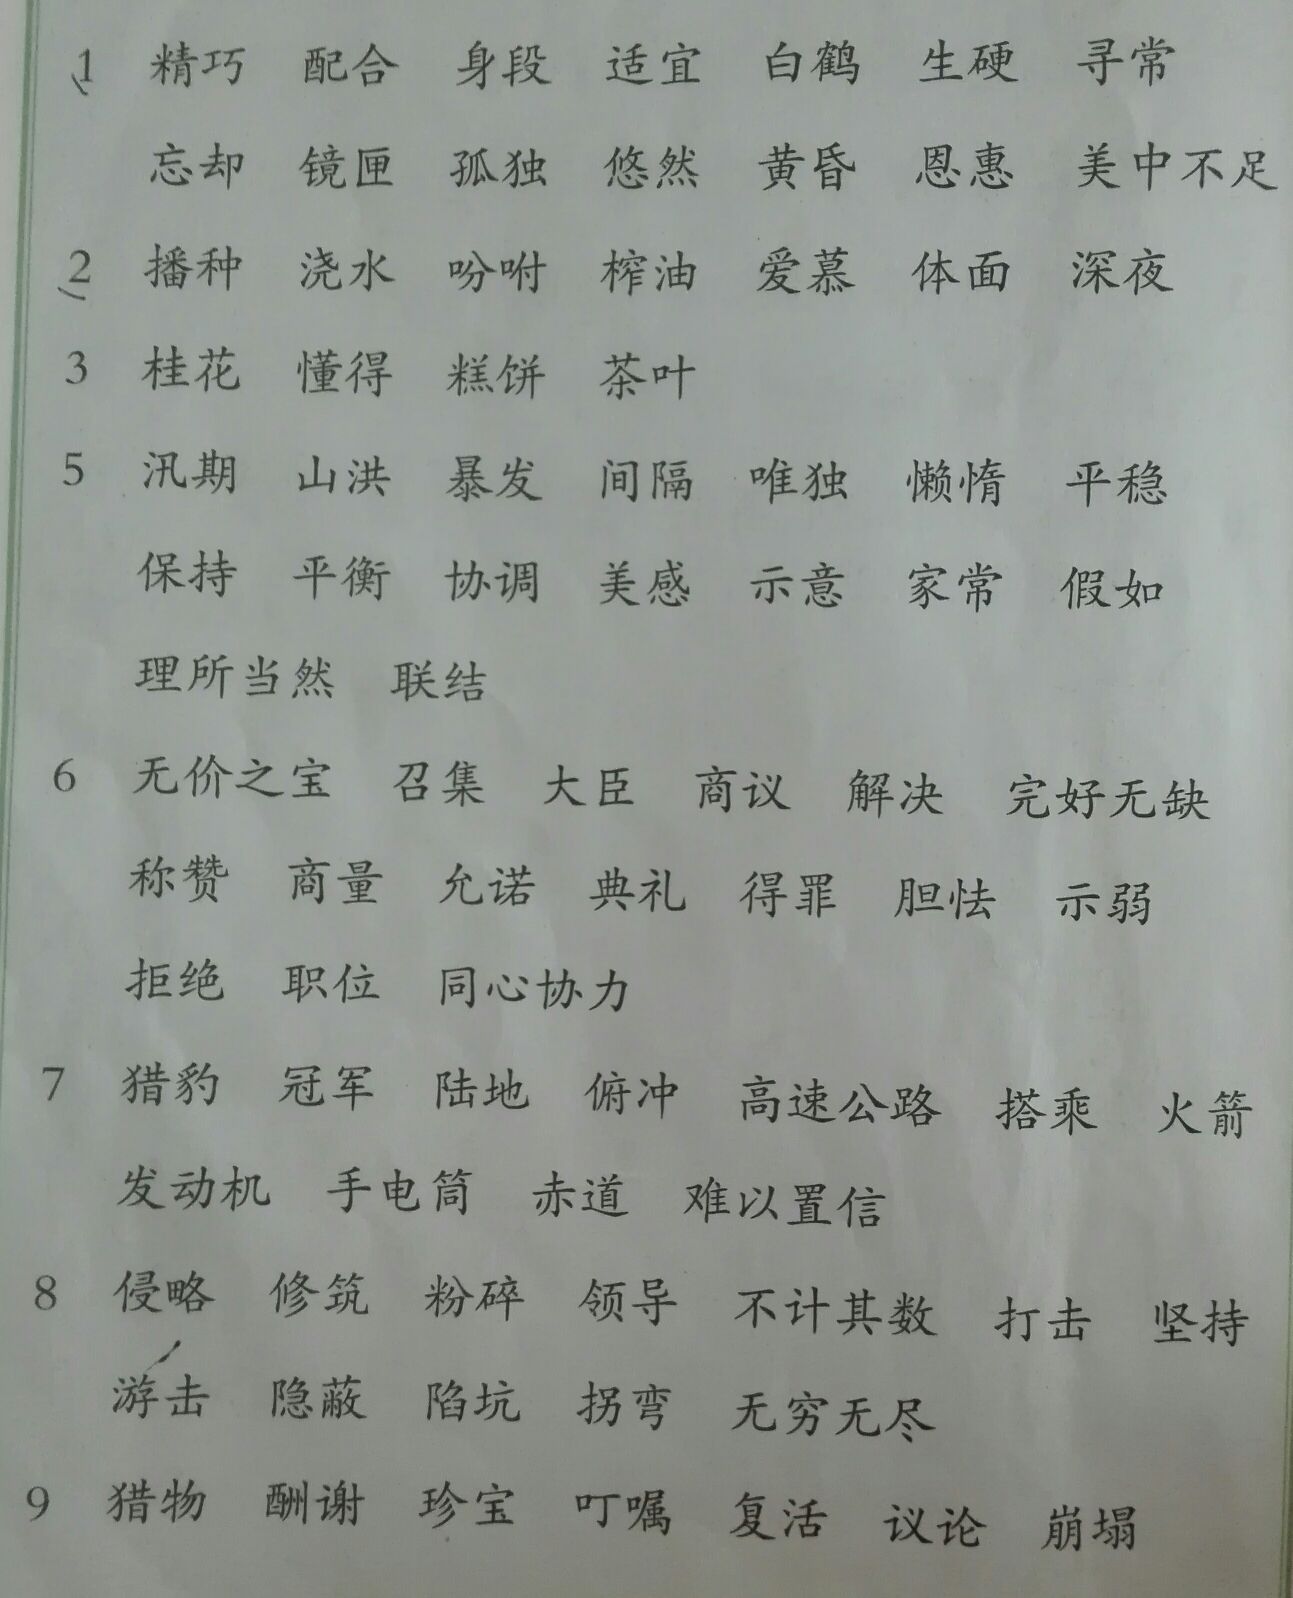 1 精巧 配合 身段 适宜 白鹤 生硬 寻常
忘却 镜匣 孤独 悠然 黄昏 恩惠 美中不足
2 播种 浇水 吩咐 榨油 爱慕 体面 深夜
3 桂花 懂得 糕饼 茶叶
5 汛期 山洪 暴发 间隔 唯独 懒惰 平稳
保持 平衡 协调 美感 示意 家常 假如
理所当然 联结
6 无价之宝 召集 大臣 商议 解决 完好无缺
称赞 商量 允诺 典礼 得罪 胆怯 示弱
拒绝 职位 同心协力
7 猎豹 冠军 陆地 俯冲 高速公路 搭乘 火箭
发动机 手电筒 赤道 难以置信
8 侵略 修筑 粉碎 领导 不计其数 打击 坚持
游击 隐蔽 陷坑 拐弯 无穷无尽
9 猎物 酬谢 珍宝 叮嘱 复活 议论 崩塌